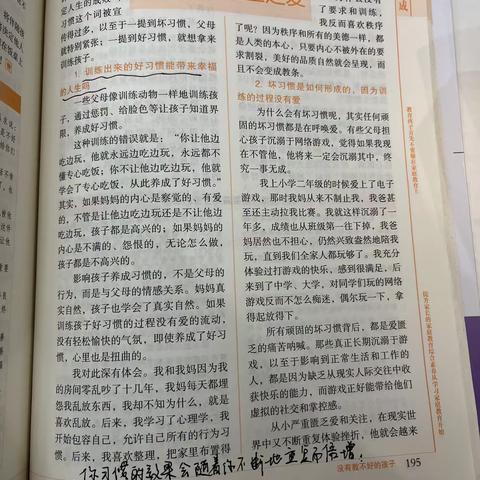 习惯这个词被宣
传得过多,以至于一提到坏习惯,父母
就特别紧张;一提到好习惯,就想拿来
训练孩子。
1. 训练出来的好习惯能带来幸福
的人生吗
一些父母像训练动物一样地训练孩
子,通过惩罚、给脸色等让孩子知道界
限,养成好习惯。
这种训练的错误就是:“你让他边
吃边玩,他就永远边吃边玩,永远都不
懂专心吃饭;你不让他边吃边玩,他就
学会了专心吃饭,从此养成了好习惯。”
其实,如果妈妈的内心是察觉的、有爱
的,不管是让他边吃边玩还是不让他边
吃边玩,孩子都是高兴的;如果妈妈的
内心是不满的、怨恨的,无论怎么做,
孩子都是不高兴的。
影响孩子养成习惯的,不是父母的
行为,而是与父母的情感关系。妈妈真
实自然,孩子也学会了真实自然。如果
训练孩子好习惯的过程没有爱的流动,
没有轻松愉快的气氛,即使养成了好习
惯,心里也是扭曲的。
我对此深有体会。我和我妈因为我
的房间零乱吵了十几年,我妈每天都埋
怨我乱放东西,我却不知为什么,就是
喜欢乱放。后来,我学习了心理学,我
开始包容自己,允许自己所有的行为习
惯。后来,我喜欢整理,把家里布置得
了要求和训练,
我反而喜欢秩序
了呢?因为秩序和所有的美德一样,都
是人类的本心,只要内心不被外在的要
求割裂,美好的品质自然就会呈现,而
且不会变成教条。
2. 坏习惯是如何形成的,因为训
练的过程没有爱
为什么会有坏习惯呢,其实任何顽
固的坏习惯都是在呼唤爱。有些父母担
心孩子沉溺于网络游戏,觉得如果我现
在不管他,他将来一定会沉溺其中,终
究一事无成。
我上小学二年级的时候爱上了电子
游戏,那时我妈从来不制止我,我爸甚
至还主动拉我比赛。我就这样沉溺了一
年多,成绩也从班级第一往下掉,我爸
妈居然也不担心,仍然兴致盎然地陪我
玩,直到我们全家人都玩够了。我充分
体验过打游戏的快乐,感到很满足,后
来到了中学、大学,对同学们玩的网络
游戏反而不怎么痴迷,偶尔玩一下,拿
得起放得下。
所有顽固的坏习惯背后,都是爱匮
乏的痛苦呐喊。那些真正长期沉溺于游
戏,以至于影响到正常生活和工作的
人,都是因为缺乏从现实人际交往中收
获快乐的能力,而游戏正好能带给他们
虚拟的社交和掌控感。
从小严重匮乏爱和关注,在现实世
界中又不断重复体验挫折,他就会越来
没有教不好的孩子 195